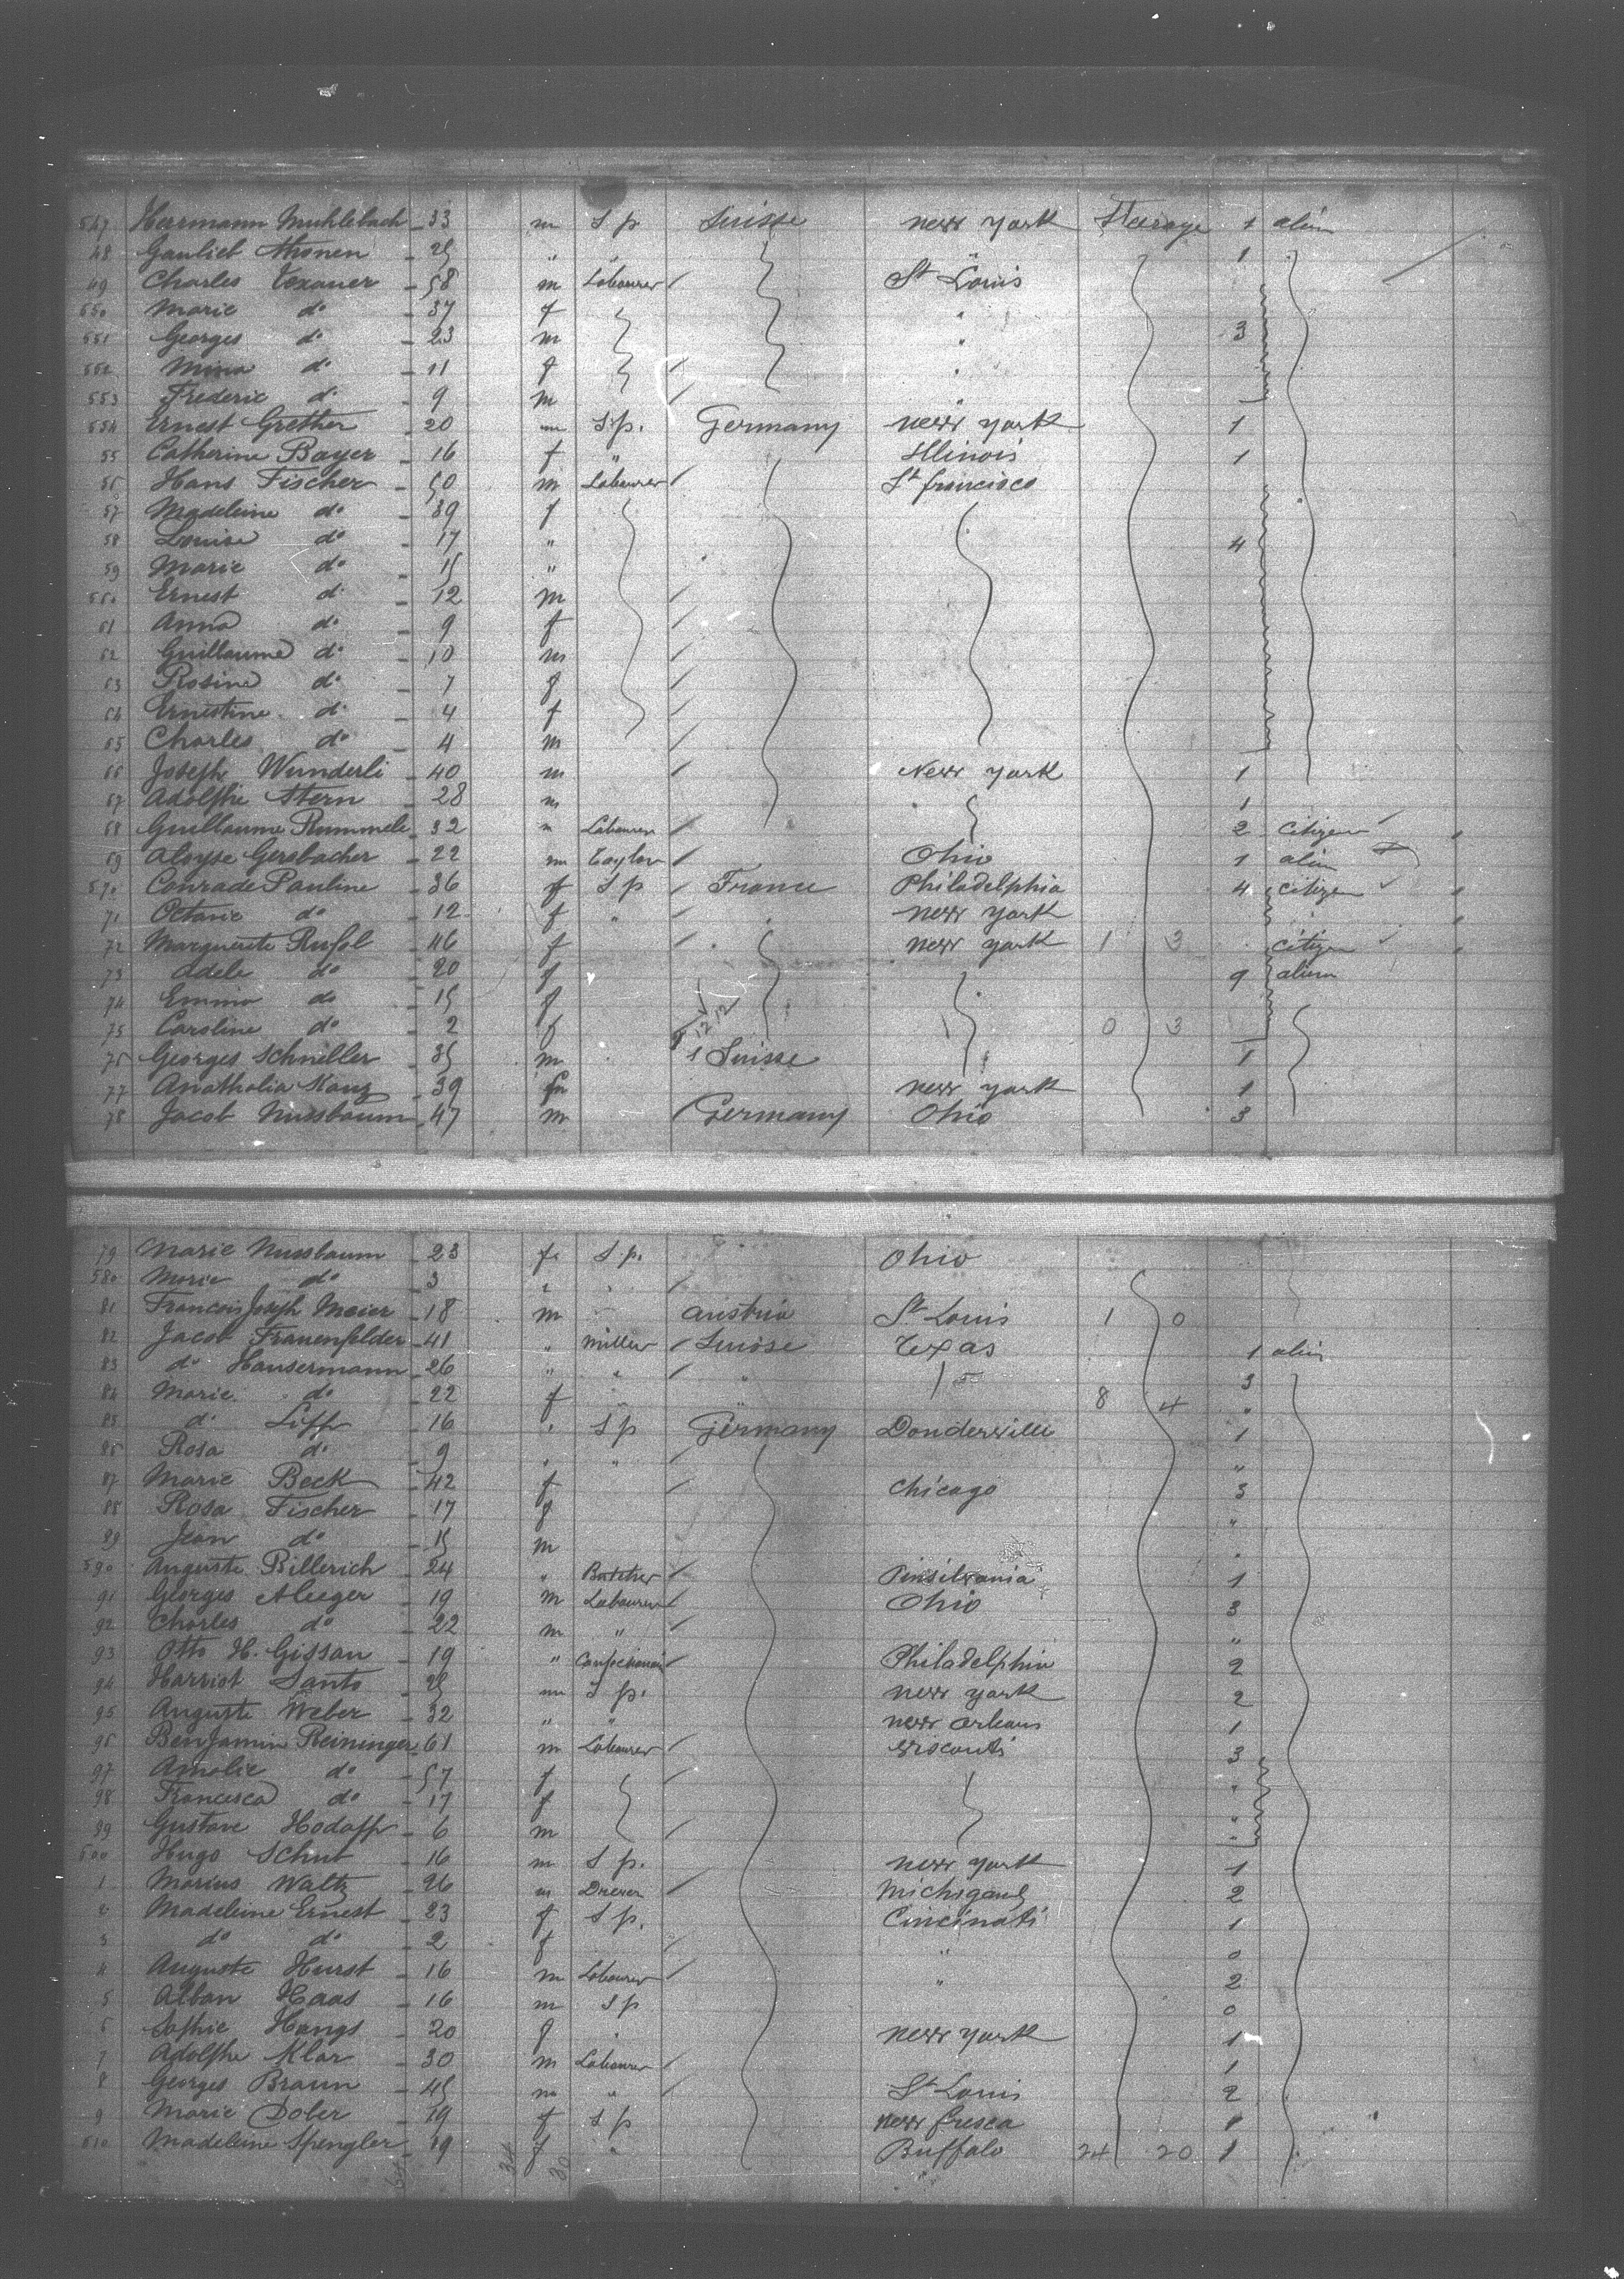 547 Herrmann Muhlebach 33 m S p Suisse new york Steerage 1 alien
48 25 " " " 1
49 Charles Texauer 58 m Labourer St Louis
550 Marie do 37 f "
551 Georges do 23 m " 3
552 Mina do 11 f "
553 Frederic do 9 m "
554 Ernest Grether 20 m S.p. Germany new york 1
55 Catherine Bayer 16 f " Illinois 1
56 Hans Fischer 50 m Labourer St francisco
57 Madeleine do 39 f
58 Louise do 17 " 4
59 Marie do 15 "
560 Ernest do 12 m
61 Anna do 9 f
62 Guillaume do 10 m
63 Rosine do 7 f
64 Ernestine do 4 f
65 Charles do 4 m
66 Joseph Wunderli 40 m New york 1
67 Adolphe Stern 28 m 1
68 Guillaume Rummele 32 " Labourer 2 citizen
69 Aloyse Gersbacher 22 m Taylor Ohio 1 alien
570 Conrade Pauline 36 f S p France Philadelphia 4 citizen
71 Octavie do 12 f " " new york
72 Marguerite Rufol 46 f new york 1 3 citizen
73 Adele do 20 f 9 alien
74 Emma do 15 f
75 Caroline do 2 f 0 3
76 Georges Schneller 35 m Suisse 1
77 Anathalia Kanz 39 f new york 1
78 Jacob Nussbaum 47 m Germany Ohio 3
79 Marie Nussbaum 23 f S.p. Ohio
580 Marie do 3 "
81 Francois Joseph Maier 18 m Austria St Louis 1 0
82 Jacob Frauenfelder 41 " Miller Suisse Texas 1 alien
83 do Hausermann 26 " " " 3
84 Marie do 22 f " 8 4 "
85 do Lipp 16 " S p Germany Donderville 1
86 Rosa do 9 " " "
87 Marie Beck 42 f Chicago 3
88 Rosa Fischer 17 f "
89 Jean do 15 m "
590 Auguste Billerich 24 " Butcher Pinsilvania 1
91 Georges Aleeger 19 m Labourer Ohio 3
92 Charles do 22 m " "
93 Otto H. Gissan 19 " Philadelphia 2
94 Harriot Santo m S p. new york 2
95 Auguste Weber 32 " " new orleans 1
96 BenJamin Reininger 61 m Labourer Visconti 3
97 Amalie do 57 f "
98 Francisca do 17 f "
99 Gustave Hodapp 6 m "
600 Hugo Schut 16 m S p. new york 1
1 Marius Waltz 26 m Michigand 2
2 Madeleine Ernest 23 f S p. Cincinati 1
3 do do 2 f " 0
4 Auguste Hurst 16 m Labourer " 2
5 Alban Haas 16 m S p 0
6 Sophie Hangs 20 f " new york 1
7 Adolphe Klar 30 m Labourer 1
8 Georges Braun 45 m " St Louis 2
9 Marie Dober 19 f S p new fresca 1
610 Madeleine Spengler 19 f " Buffalo 24 20 1